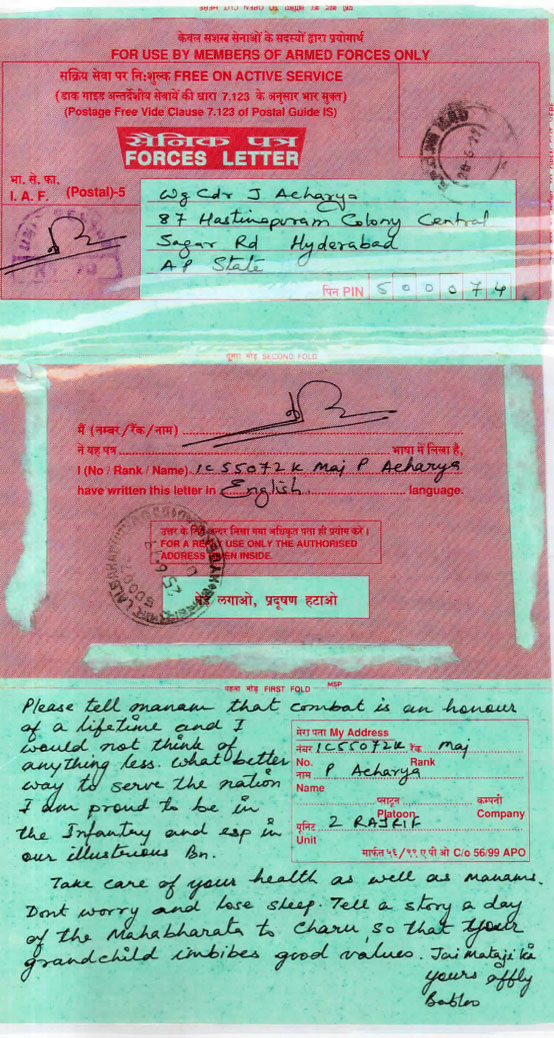 केवल सशस्त्र सेनाओं के सदस्यों द्वारा प्रयोगार्थ
FOR USE BY MEMBERS OF ARMED FORCES ONLY
सक्रिय सेवा पर नि:शुल्क FREE ON ACTIVE SERVICE
(डाक गाइड अन्तर्देशीय सेवायें की धारा 7.123 के अनुसार भार मुक्त)
(Postage Free Vide Clause 7.123 of Postal Guide IS)
सैनिक पत्र
FORCES LETTER
भा. से. फा.
I. A. F. (Postal)-5
Wg Cdr J Acharya
87 Hastinapuram Colony Central
Sagar Rd Hyderabad
AP State
पिन PIN 500074
दूसरा मोड़ SECOND FOLD
मैं (नम्बर/रैंक/नाम)
ने यह पत्र भाषा में लिखा है,
I (No / Rank / Name) IC 55072K Maj P Acharya
have written this letter in English language.
उत्तर के लिए अन्दर लिखा गया अधिकृत पता ही प्रयोग करें।
FOR A REPLY USE ONLY THE AUTHORISED
ADDRESS GIVEN INSIDE.
पेड़ लगाओ, प्रदूषण हटाओ
पहला मोड़ FIRST FOLD MSP
Please tell manam that combat is an honour
of a lifetime and I
would not think of
anything less. what better
way to serve the nation
I am proud to be in
the Infantry and esp in
our illustrious Bn.
मेरा पता My Address
नंबर IC55072K रैंक Maj
No. Rank
नाम P Acharya
Name
प्लाटून कम्पनी
Platoon Company
यूनिट 2 RAJRIF
Unit
मार्फत ५६/९९ ए पी ओ C/o 56/99 APO
Take care of your health as well as manams.
Dont worry and lose sleep. Tell a story a day
of the Mahabharata to Charu, so that your
grandchild imbibes good values. Jai Mataji ki
yours affly
Babloo